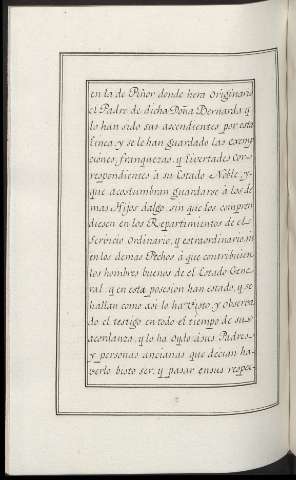 en la de Piñor donde hera Originario
el Padre de dicha Doña Bernarda, y
lo han sido sus ascendientes por esta
linea, y se le han guardado las exemp
ciones, franquezas, y livertades Cor-
respondientes à su Estado Noble, y-
que acostumbran guardarse à los de
mas Hijos dalgo, sin que los compren
diesen en los Repartimientos de el-
Servicio Ordinario, y extraordinario, ni
en los demas Pechos à que contribuien
los hombres buenos de el Estado Gene
ral: y en esta posesion han estado, y se
hallan como asi lo ha Visto, y observa
do el testigo en todo el tiempo de su-
acordanza, y lo ha Oydo à sus Padres-
y personas ancianas que decian ha-
verlo visto ser, y pasar en sus respec-